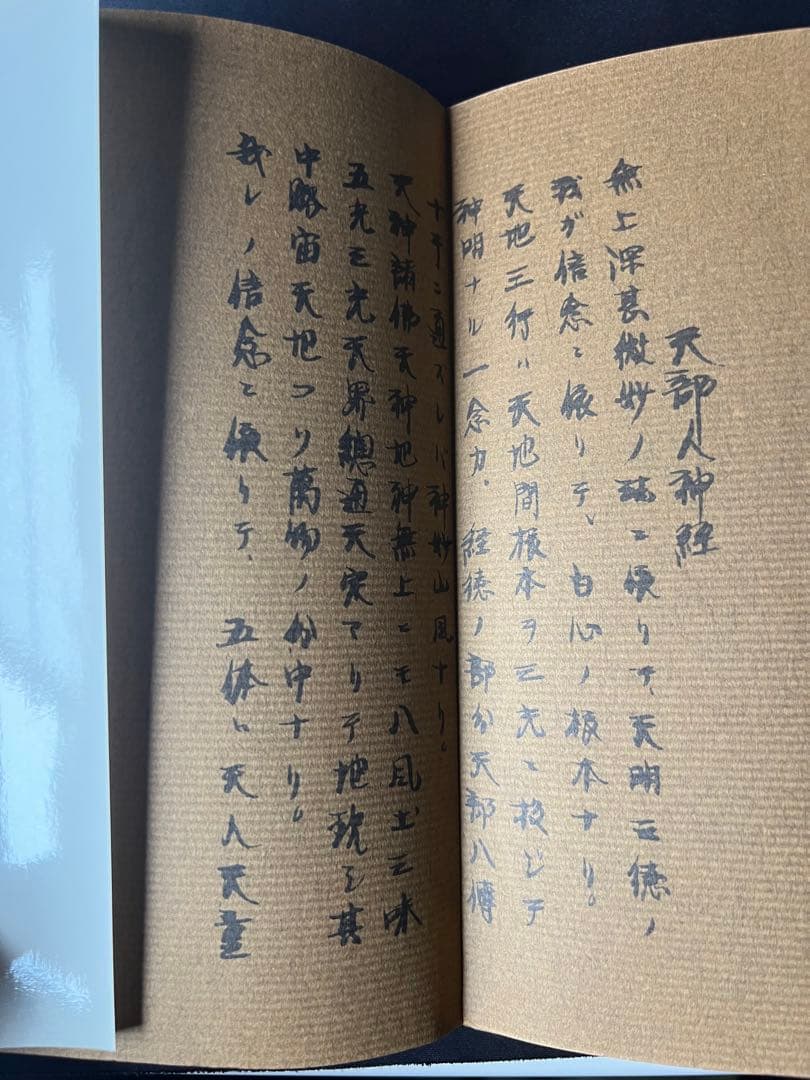 天部人神経
無上深甚微妙ノ法ニ依リテ、天明三徳ノ
我ガ信念ニ依リテ、自心ノ根本ナリ。
天地三行ハ天地間根本ヲ三光ト投じテ
神明ナル一念力、経徳ノ部分天部八傳
十干ニ通スレバ神妙山風ナリ。
天神諸佛天神地神無上ニモ八風土三味
五光三光天界總通天定マリテ地球ヲ其
中 宙天地 リ萬物ノ 中ナリ。
我レノ信念ニ依リテ、五体ハ天人天童